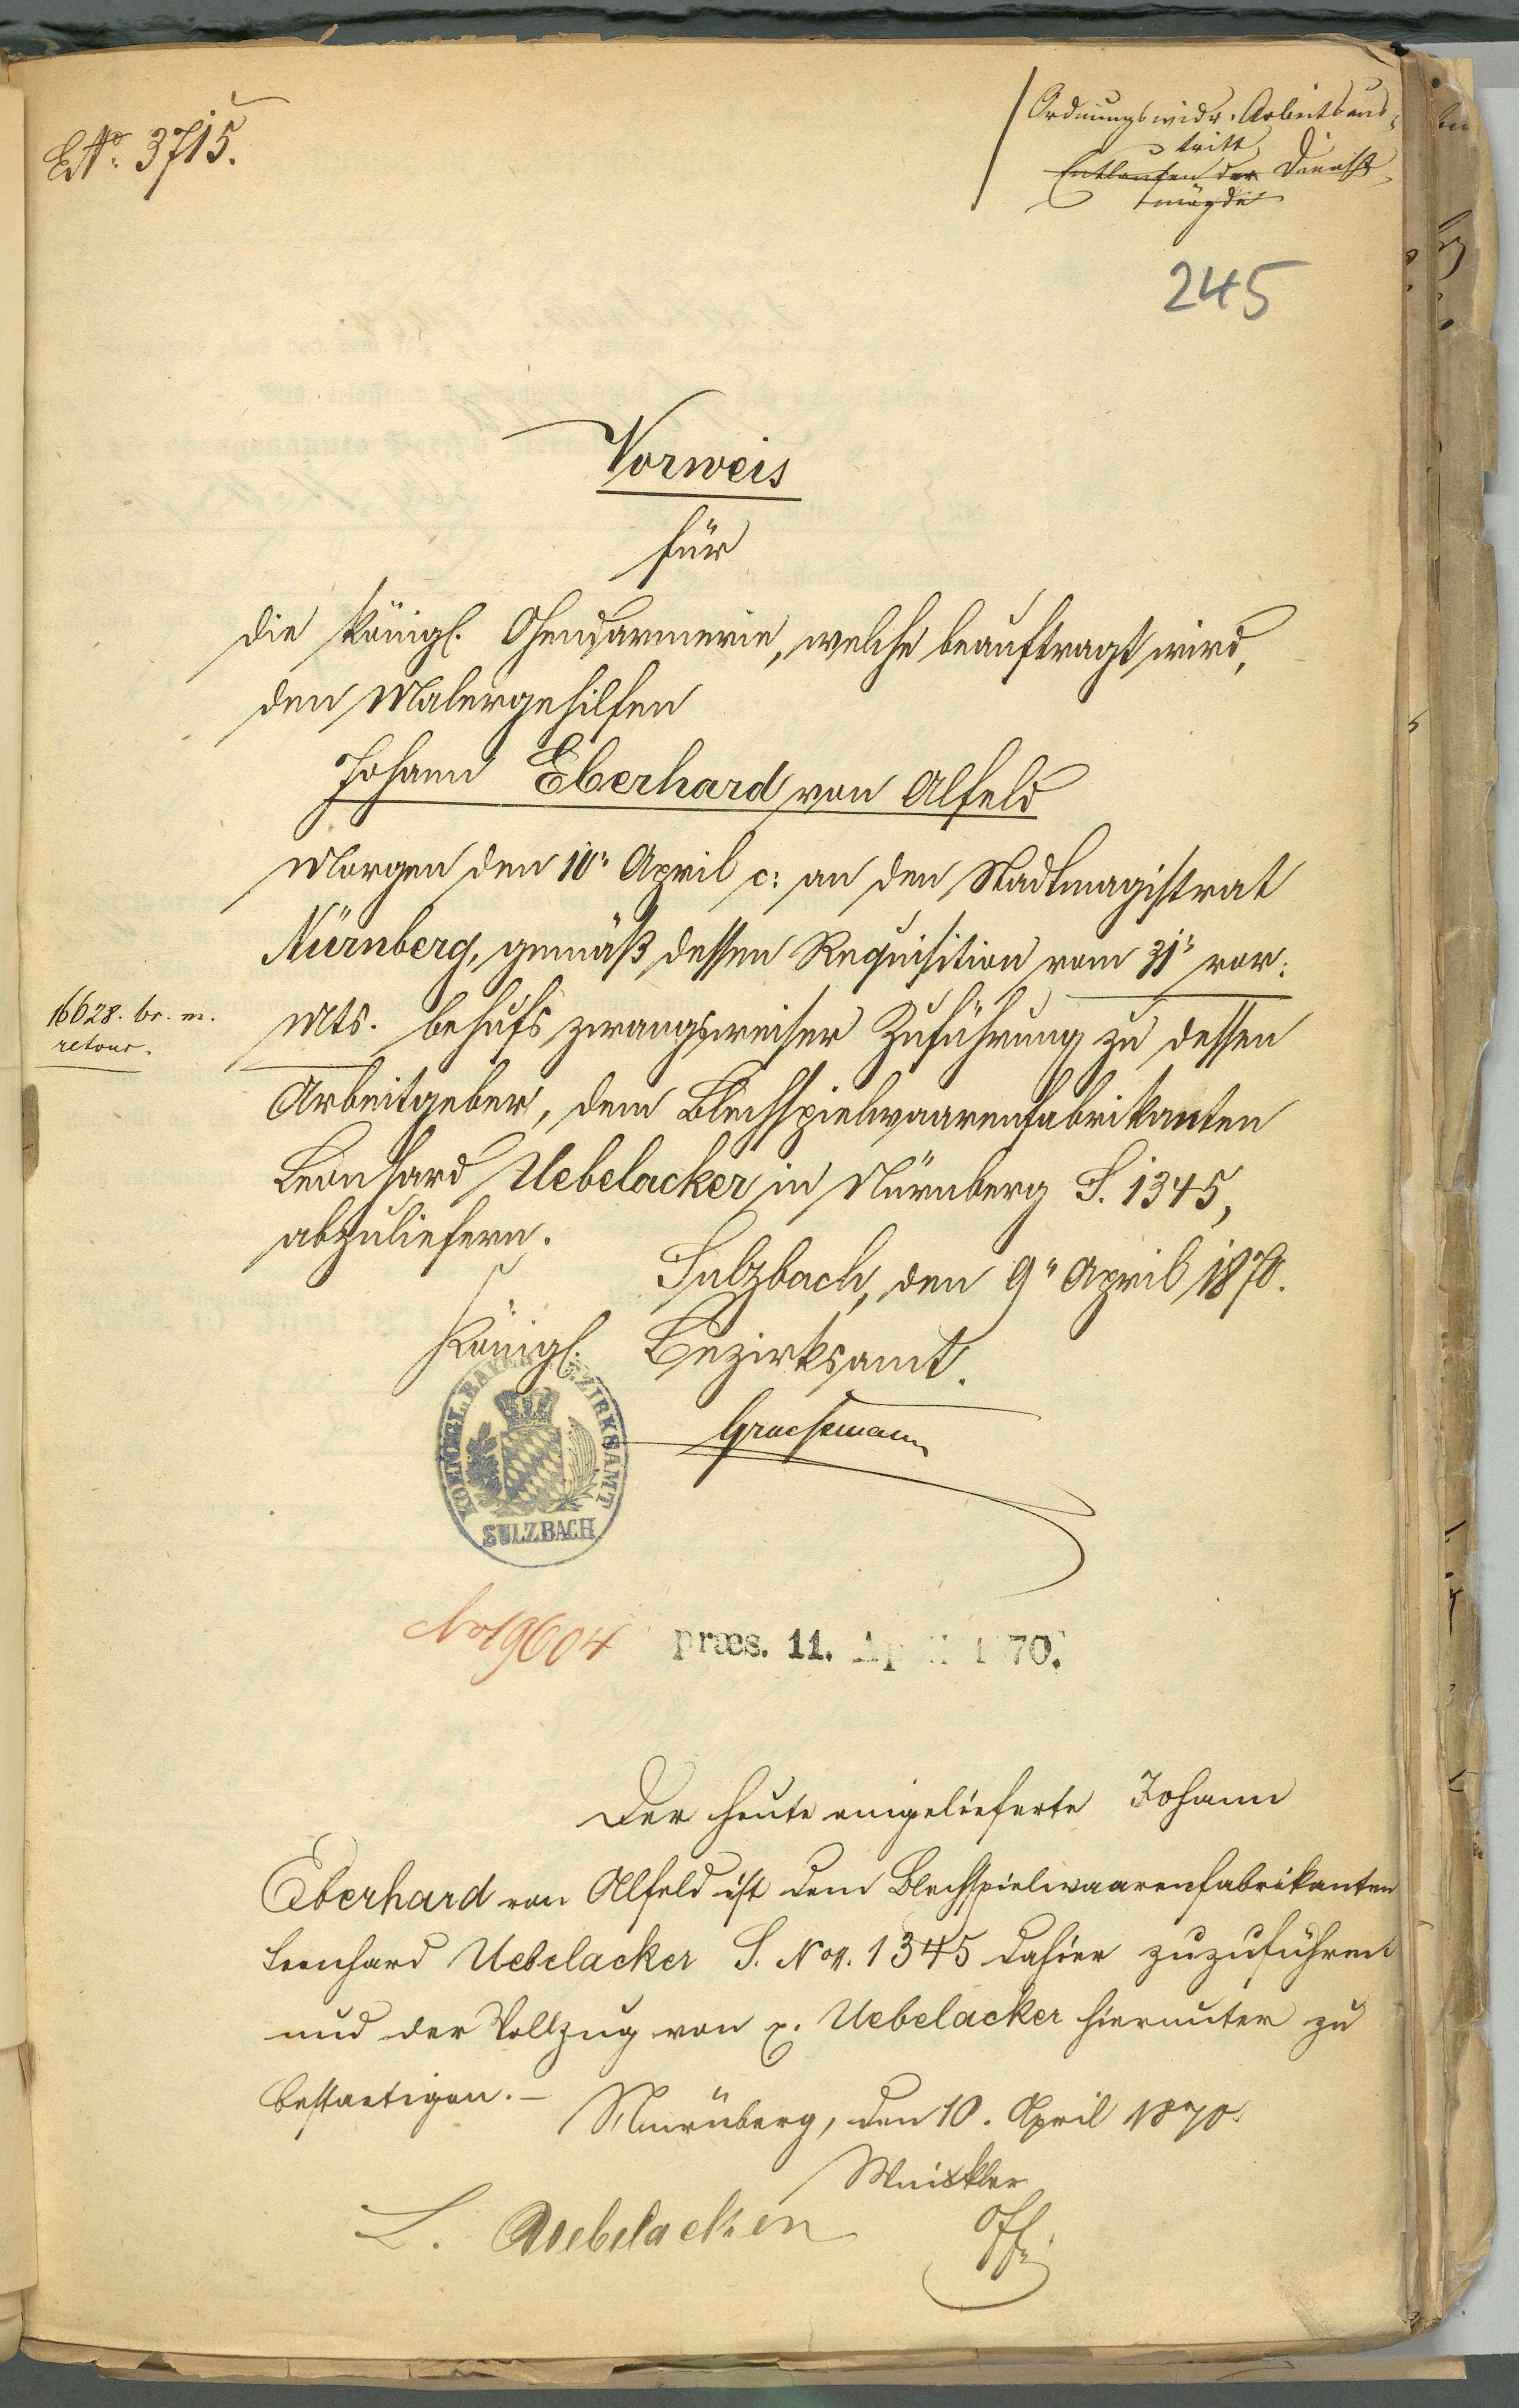 E.No. 3715.
Ordnungswidr. Arbeitsaus-
tritt
Entlaufen der Dienst-
mägde
245
Vorweis
für
die Königl. Gendarmerie, welche beauftragt wird,
den Malergehilfen
Johann Eberhard von Alfeld
Morgen den 10. April c: an den Stadtmagistrat
Nürnberg, gemäß dessen Requisition vom 31. vor:
16628. br. m.
retour.
Mts. behufs zwangsweiser Zuführung zu dessen
Arbeitgeber, dem Blechspielwaarenfabrikanten
Leonhard Uebelacker in Nürnberg S. 1345,
abzuliefern.
Sulzbach, den 9. April 1870.
Königl. Bezirksamt.
KOENIGL. BAYER. BEZIRKSAMT
SULZBACH
No 19604 præs. 11. April 1870.
Der heute eingelieferte Johann
Eberhard von Alfeld ist dem Blechspielwaarenfabrikanten
Leonhard Uebelacker S. No. 1345 dahier zuzuführen
und der Vollzug von x. Uebelacker hierunter zu
bestaetigen. –
Nürnberg, den 10. April 1870.
L. Uebelacker
Off.